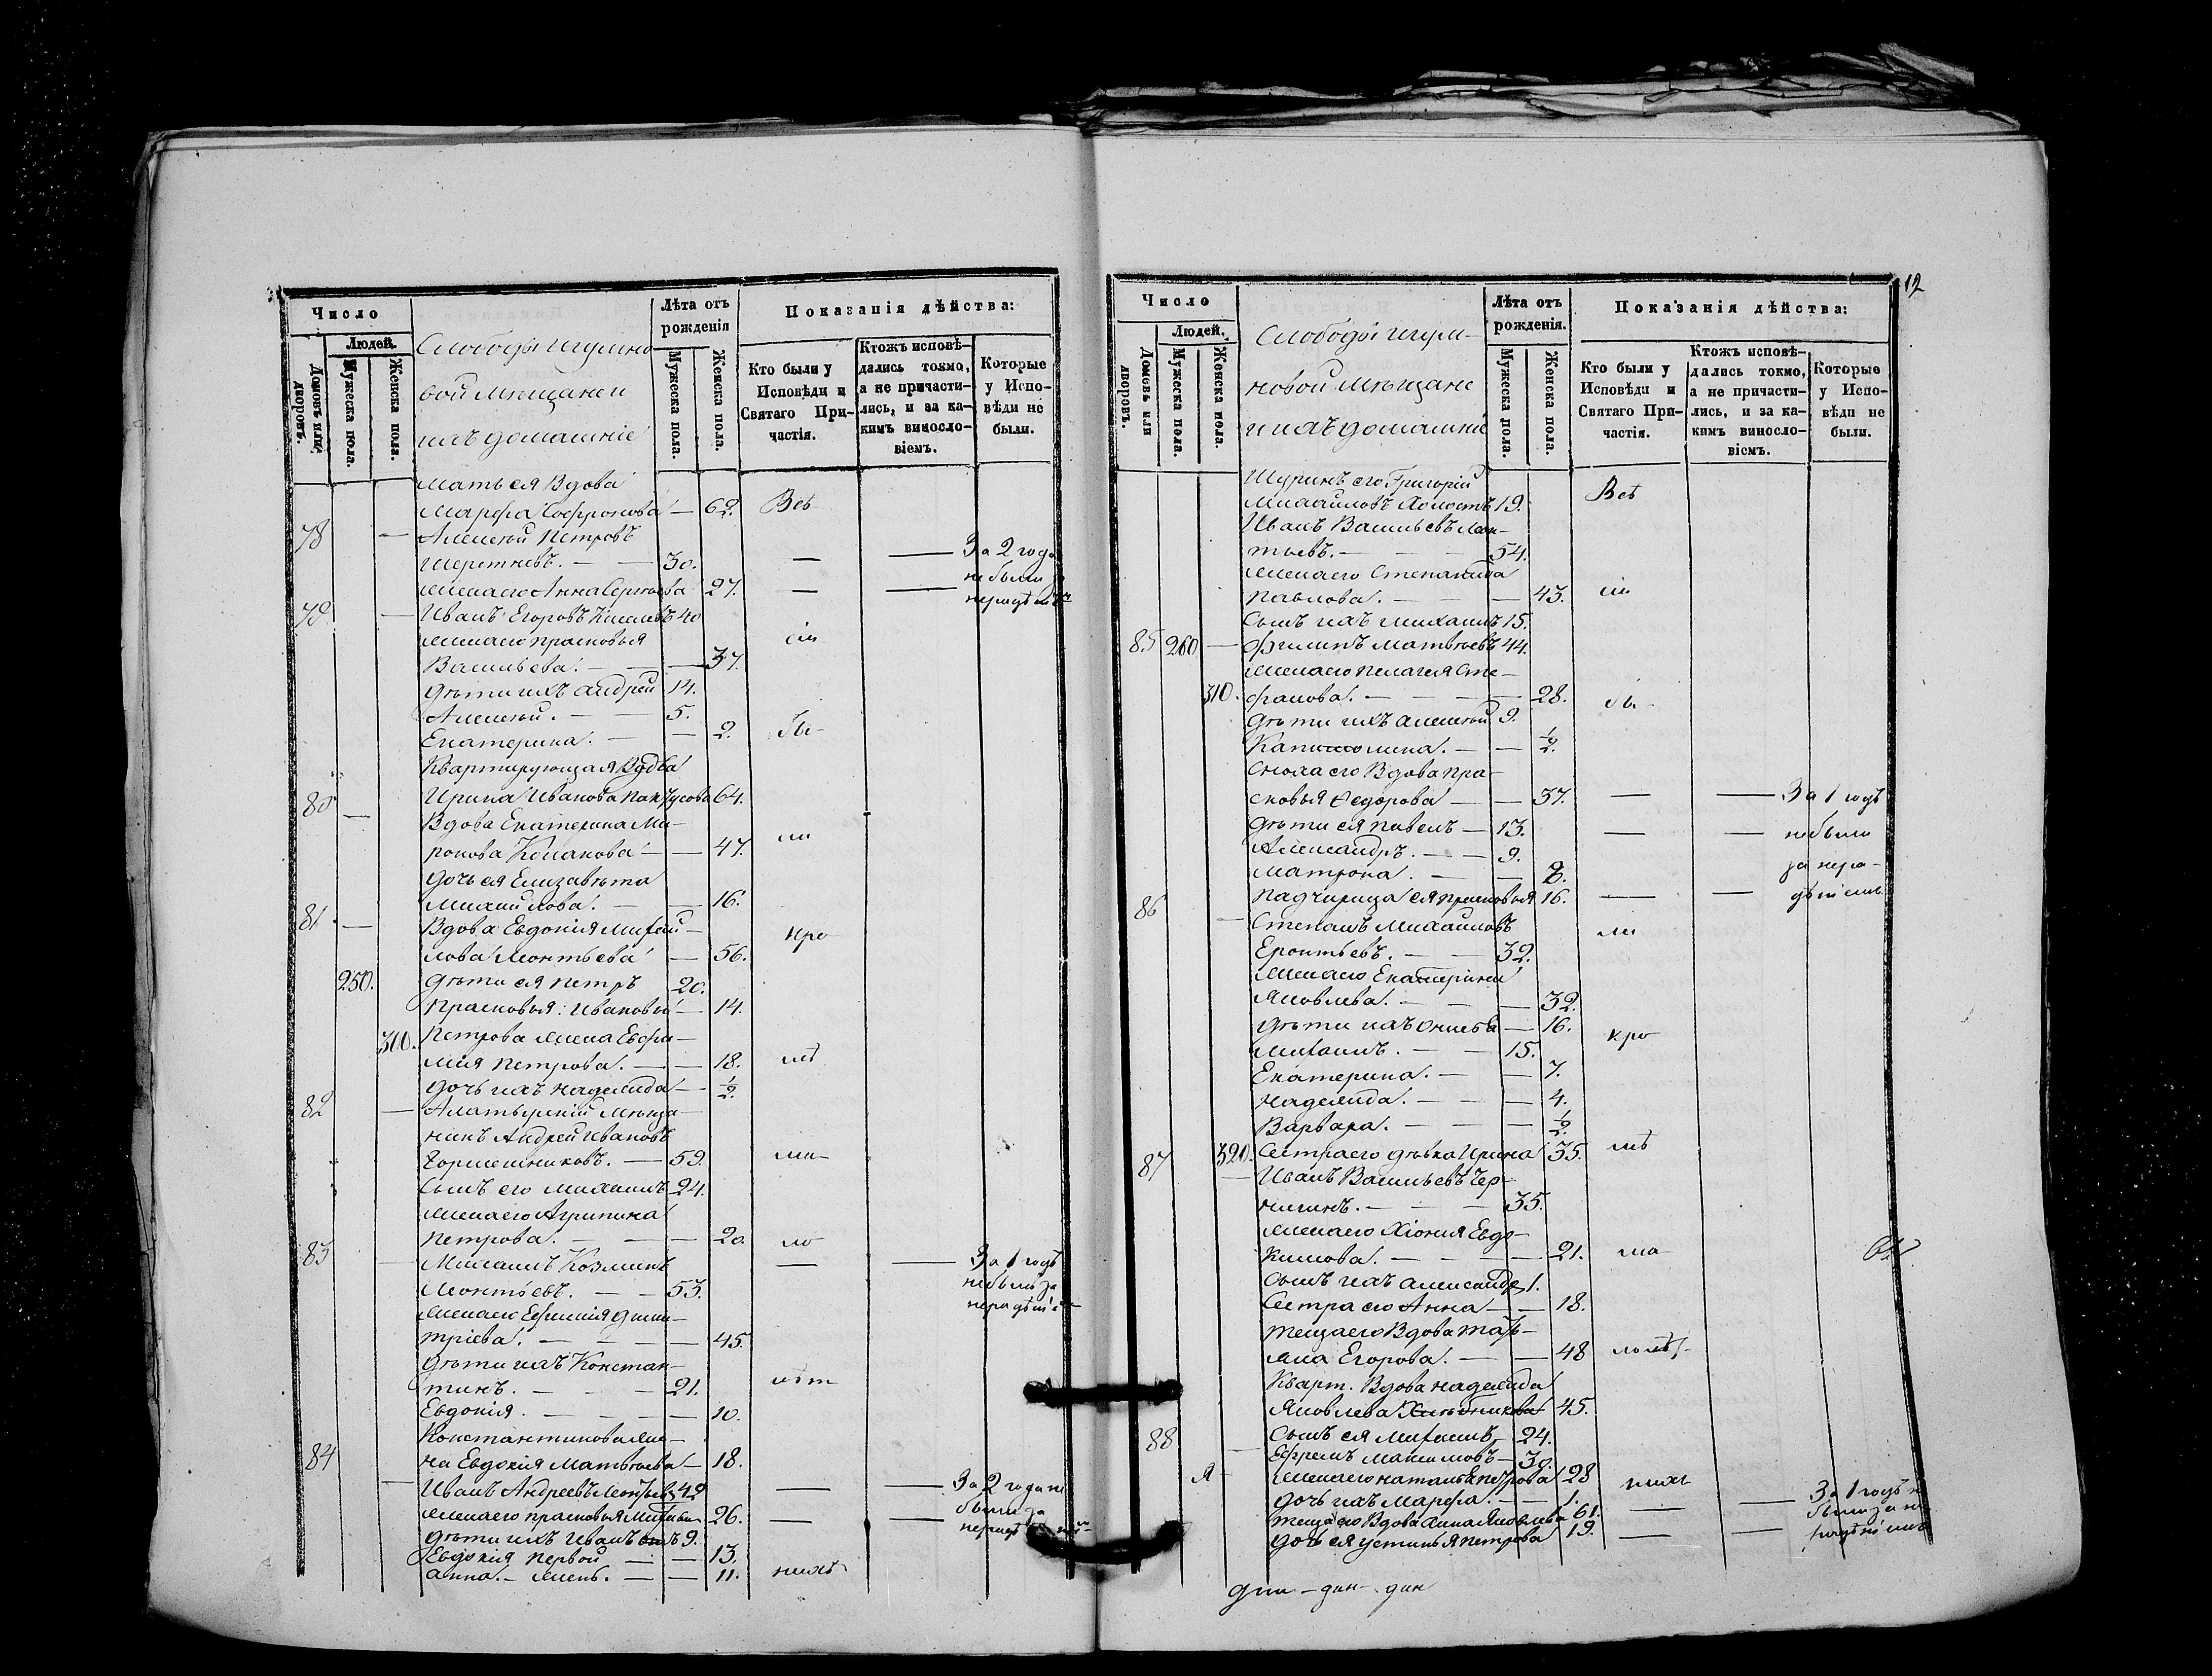 Число
Людей.
Домовъ или дворовъ.
Мужеска пола.
Женска пола.
Слободы Игумно
вой мѣщане и
ихъ домашніе
Лѣта отъ рожденія
Мужеска пола.
Женска пола.
Показанія дѣйства:
Кто были у Исповѣди и Святаго Причастія.
Ктожъ исповѣдались токмо, а не причастились, и за какимъ винословіемъ.
Которые у Исповѣди не были.
мать ея Вдова
Марфа Софронова — 62. Всѣ
78 — Алексѣй Петровъ
— — 30. — — За 2 года
жена его Анна Сергѣева 27. — — не были за
79 — Иванъ Егоровъ Киселевъ 40
жена его Прасковья сіи
Васильева. — — 37.
дѣти ихъ Андрей 14.
Алексѣй. — — 5.
Екатерина. — — 2. бы-
Квартирующая Вдова
80 Ирина Иванова 64.
— Вдова Екатерина Ми- ли
ронова — — 47.
дочь ея Елизавета
Михайлова. — — 16.
81 — Вдова Евдокія Михай- кро
лова Леонтьева — 56.
250. дѣти ея Петръ 20.
Прасковья Ивановы — 14.
300. Петрова жена Евфи-
мія Петрова. — — 18. мѣ
дочь ихъ Надежда — — ½.
82 — Алатырскій мѣща-
нинъ Андрей Ивановъ
— 59. ма-
Сынъ его Михаилъ 24.
жена его Агрипина
Петрова. — — 20 ло
83 — Михаилъ Козминъ — — За 1 годъ
Леонтьевъ. — — 53. не былъ за
жена его Дми-
тріева. — — — 45.
дѣти ихъ Констан-
тинъ. — — — 21. лѣт
Евдокія. — — — 10.
Константинова же-
84 на Евдокія Матвѣева — 18.
— Иванъ Андреевъ Леонтьевъ 42 — — За 2 года не
жена его Прасковья 26. — — были за
дѣти ихъ Иванъ 9.
Евдокія первой — — 13.
Анна. — менш. — — 11. нихъ
12
Число
Людей.
Домовъ или дворовъ.
Мужеска пола.
Женска пола.
Слободы Игум-
новой мѣщане
и ихъ домашніе
Лѣта отъ рожденія.
Мужеска пола.
Женска пола.
Показанія дѣйства:
Кто были у Исповѣди и Святаго Причастія.
Ктожъ исповѣдались токмо, а не причастились, и за какимъ винословіемъ.
Которые у Исповѣди не были.
Шуринъ его Григорій Всѣ
Михайловъ холостъ 19.
Иванъ Васильевъ Леон-
тьевъ. — — — 54.
жена его Степанида
Павлова. — — — 43. сіи
Сынъ ихъ Михаилъ 15.
85 260 — Филипъ Матвѣевъ 44.
жена его Пелагея Сте-
310. фанова. — — — 28. бы-
дѣти ихъ Алексѣй 9.
Капитолина. — — ½.
Сноха его Вдова Пра-
сковья Ѳедорова — — 37. — — За 1 годъ
дѣти ея Павелъ — 13. — — не были
Александръ. — — 9. за нера-
Матрона. — — 8.
Падчирица ея Прасковья 16. — — дѣніемъ
86 — Степанъ Михайловъ ли
— — 32.
жена его Екатерина
Яковлева. — — — 32.
дѣти ихъ — 16. кро
Михаилъ. — — 15.
Екатерина. — — 7.
Надежда. — — — 4.
Варвара. — — — ½.
87 320. Сестра его дѣвка Ирина 35. мѣ
— Иванъ Васильевъ Чер-
— — — 35.
жена его Хіонія Евдо-
кимова. — — — 21. ма-
Сынъ ихъ Александръ 1.
Сестра его Анна — — 18.
теща его Вдова Тать-
яна Егорова. — — 48
Кварт. Вдова Надежда
Яковлева 45.
88 Сынъ ея Михаилъ — 24.
— Ефремъ Максимовъ — 30.
жена его Наталья Петрова 28 нихъ
дочь ихъ Марфа. — — 1. За 1 годъ не
теща его Вдова Анна Яковлева 61. — — были за не
дочь ея Устинья Петрова 19. — — радѣніемъ